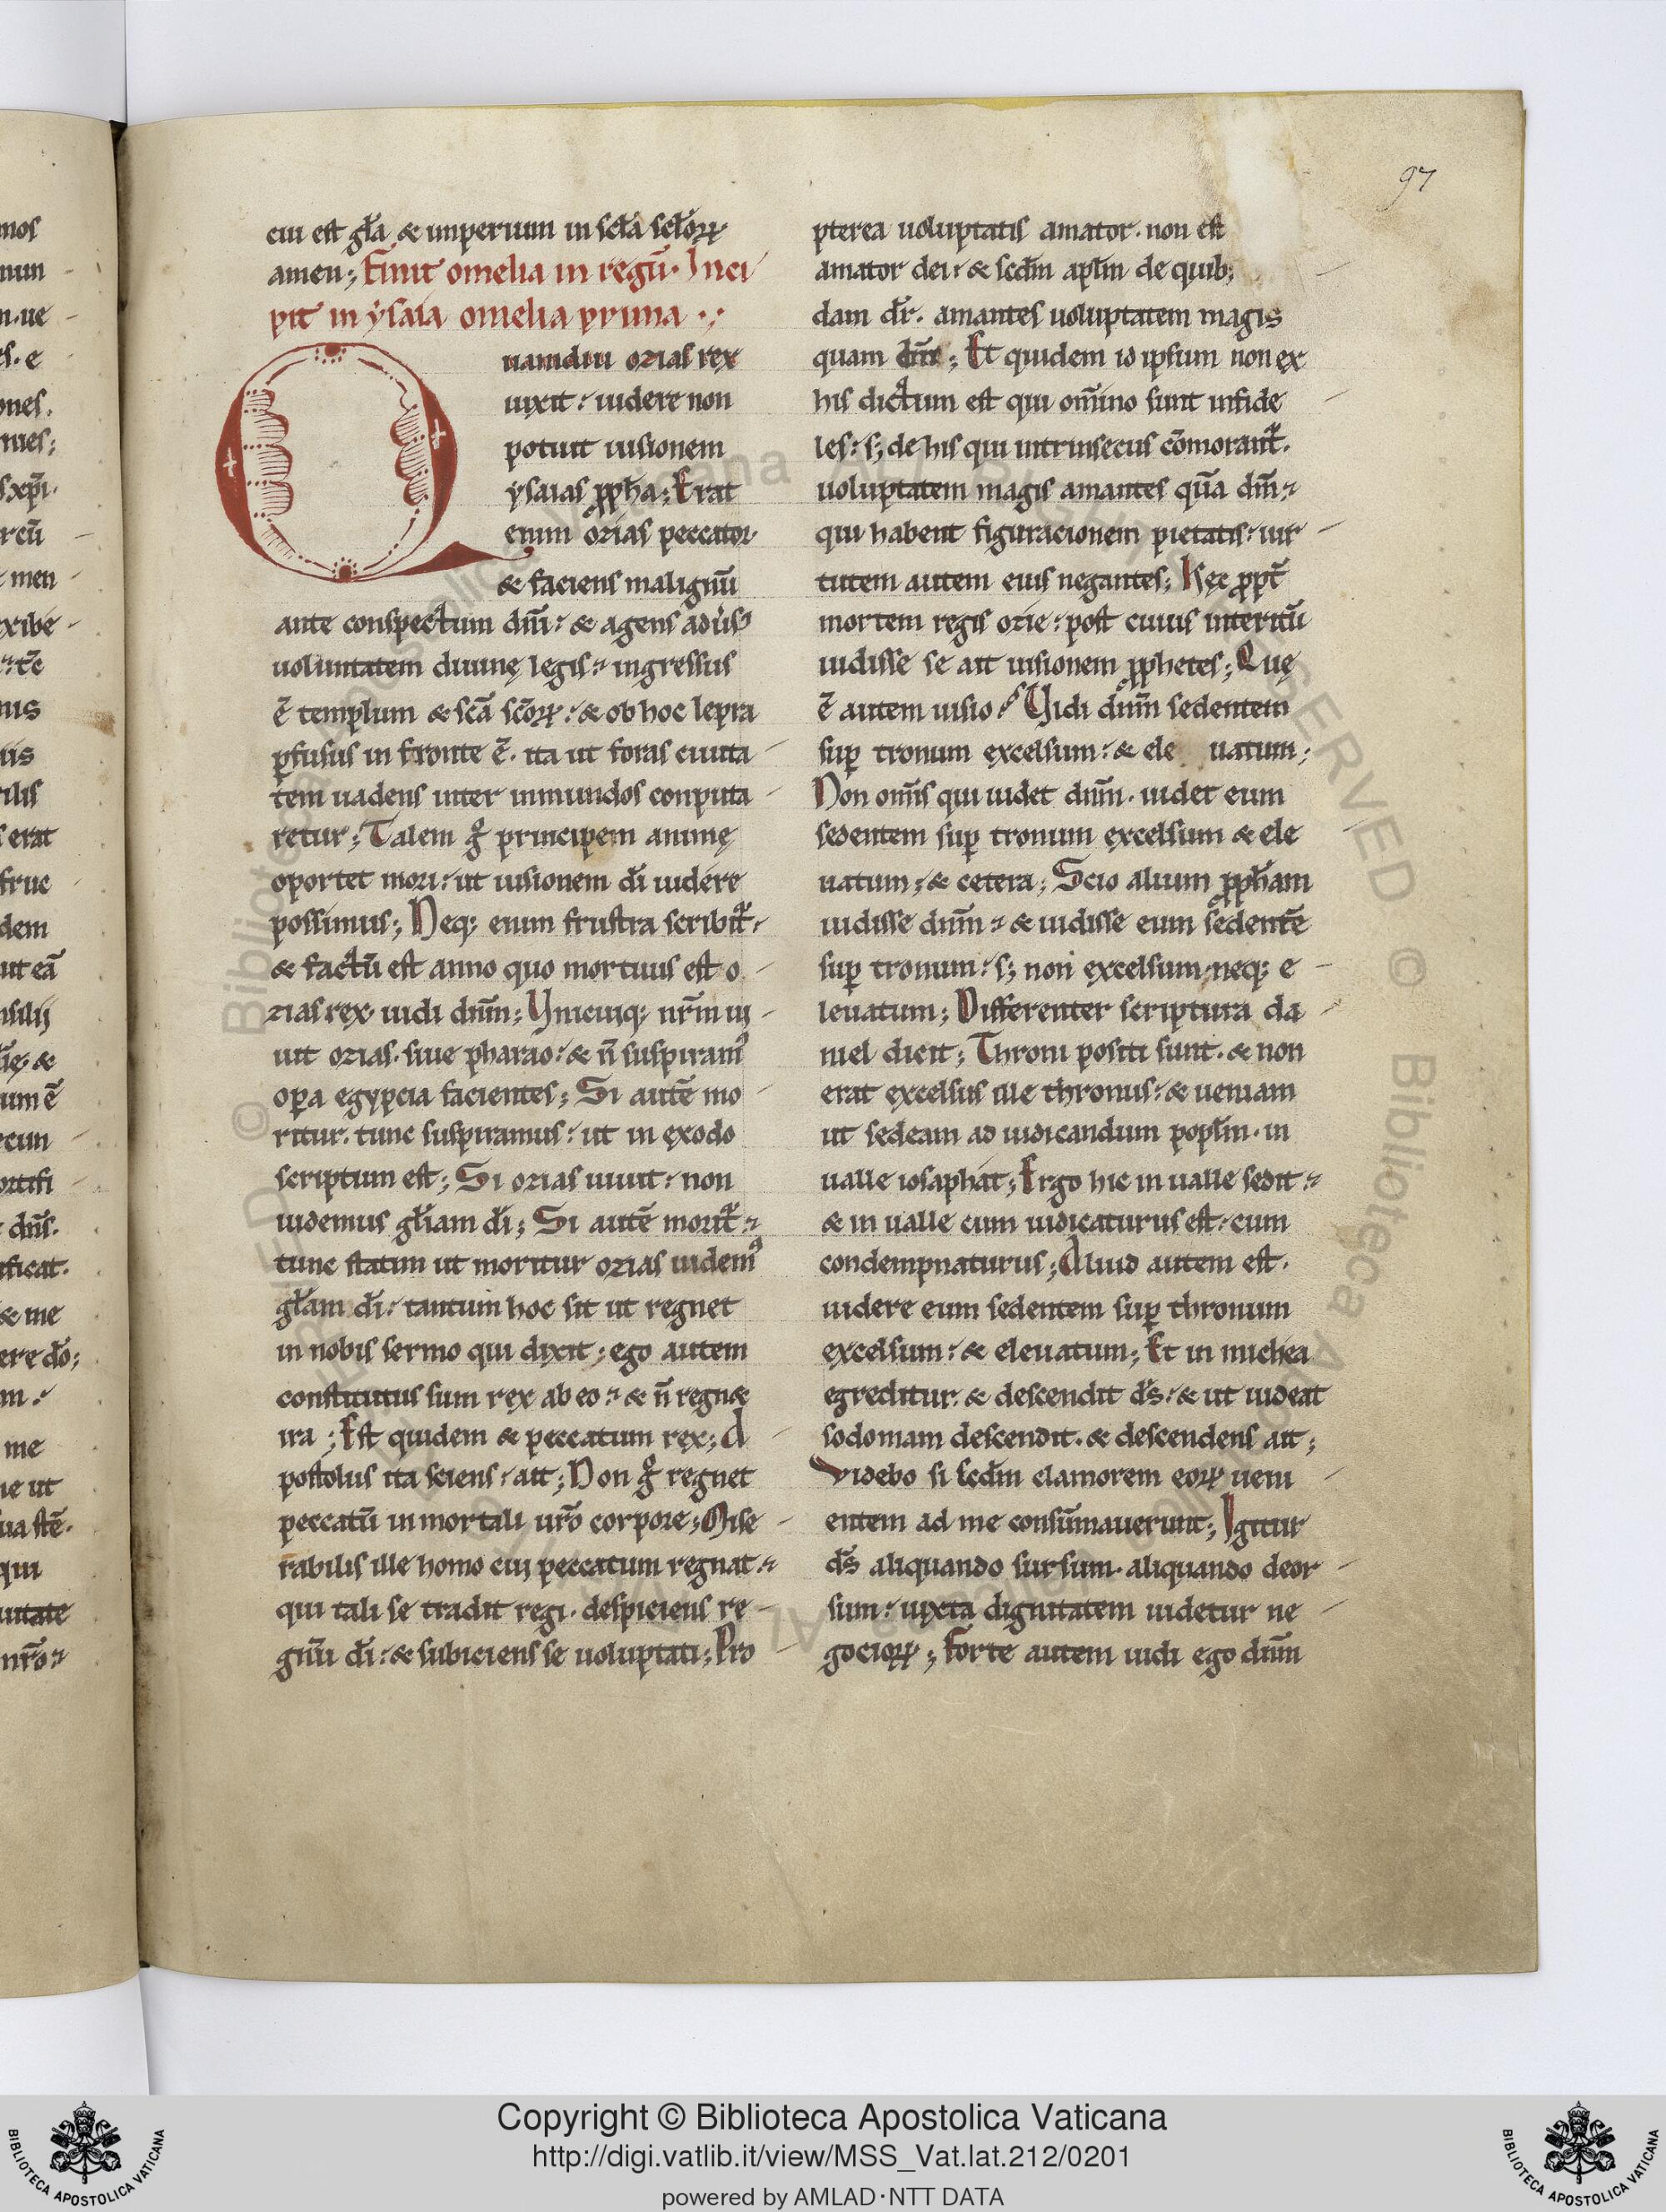 cui est gl̃a & imperium in scl̃a scl̃oꝝ
amen; Finit omelia in regū. Inci
pit in ẏsaia omelia prima .;
Quamdiu ozias rex
uixit: uidere non
potuit uisionem
ẏsaias ꝓph̃a; Erat
enim ozias peccator
& faciens malignū
ante conspectum dn̄i: & agens aduͥsꝰ
uoluntatem diuinę legis: ingressus
ē templum & sc̄a sc̄oꝝ: & ob hoc lepra
ꝑfusus in fronte ē. ita ut foras ciuita
tem uadens inter inmundos conputa
retur; Talem gͦ principem animę
oportet mori: ut uisionem dī uidere
possimus; Neq; enim frustra scribit᷑:
& factū est anno quo mortuus est o
zias rex uidi dn̄m; Vnicuiq; nr̄m ui
uit ozias. siue pharao: & n̄ suspiramꝰ
oꝑa egypcia facientes; Si autē mo
ritur. tunc suspiramus: ut in exodo
scriptum est; Si ozias uiuit: non
uidemus gl̃iam dī; Si autē morit᷑:
tunc statim ut moritur ozias uidemꝰ
gl̃am dī: tantum hoc sit ut regnet
in nobis sermo qui dixit; ego autem
constitutus sum rex ab eo: & n̄ regn&
ira; Est quidem & peccatum rex; A
postolus ita sciens: ait; Non gͦ regnet
peccatū in mortali ur̄o corpore; Mise
rabilis ille homo cui peccatum regnat:
qui tali se tradit regi. despiciens re
gnū dī: & subiciens se uoluptati; Pro
pterea uoluptatis amator. non est
amator dei: & scd̄m apl̃m de quib;
dam dr̄. amantes uoluptatem magis
quam dn̄m; Et quidem id ipsum non ex
his dictum est qui om̄ino sunt infide
les: s; de his qui intrinsecus cōmorant᷑.
uoluptatem magis amantes quā dn̄m:
qui habent figuracionem pietatis: uir
tutem autem eius negantes; Hęc ꝓpt̄
mortem regis ozie: post cuius interitū
uidisse se ait uisionem ꝓphetes; Quę
ē autem uisio? Vidi dn̄m sedentem
suꝑ tronum excelsum: & ele uatum;
Non om̄is qui uidet dn̄m. uidet eum
sedentem suꝑ tronum excelsum & ele
uatum; & cetera; Scio alium ꝓph̃am
uidisse dn̄m: & uidisse eum sedentē
suꝑ tronum: s; non excelsum, neq; e
leuatum; Differenter scriptura da
niel dicit; Throni positi sunt. & non
erat excelsus ille thronus: & ueniam
ut sedeam ad iudicandum popl̃m. in
ualle iosaphat; Ergo hic in ualle sedit:
& in ualle cum iudicaturus est: cum
condempnaturus; Aliud autem est.
uidere eum sedentem suꝑ thronum
excelsum: & eleuatum; Et in michea
egreditur. & descendit ds̄: & ut uideat
sodomam descendit. & descendens ait;
Videbo si scd̄m clamorem eoꝝ ueni
entem ad me consūmauerunt; Igitur
ds̄ aliquando sursum. aliquando deor
sum: iuxta dignitatem uidetur ne
gocioꝝ; Forte autem uidi ego dn̄m
97
Copyright © Biblioteca Apostolica Vaticana
http://digi.vatlib.it/view/MSS_Vat.lat.212/0201
powered by AMLAD·NTT DATA
BIBLIOTECA APOSTOLICA VATICANA
BIBLIOTECA APOSTOLICA VATICANA